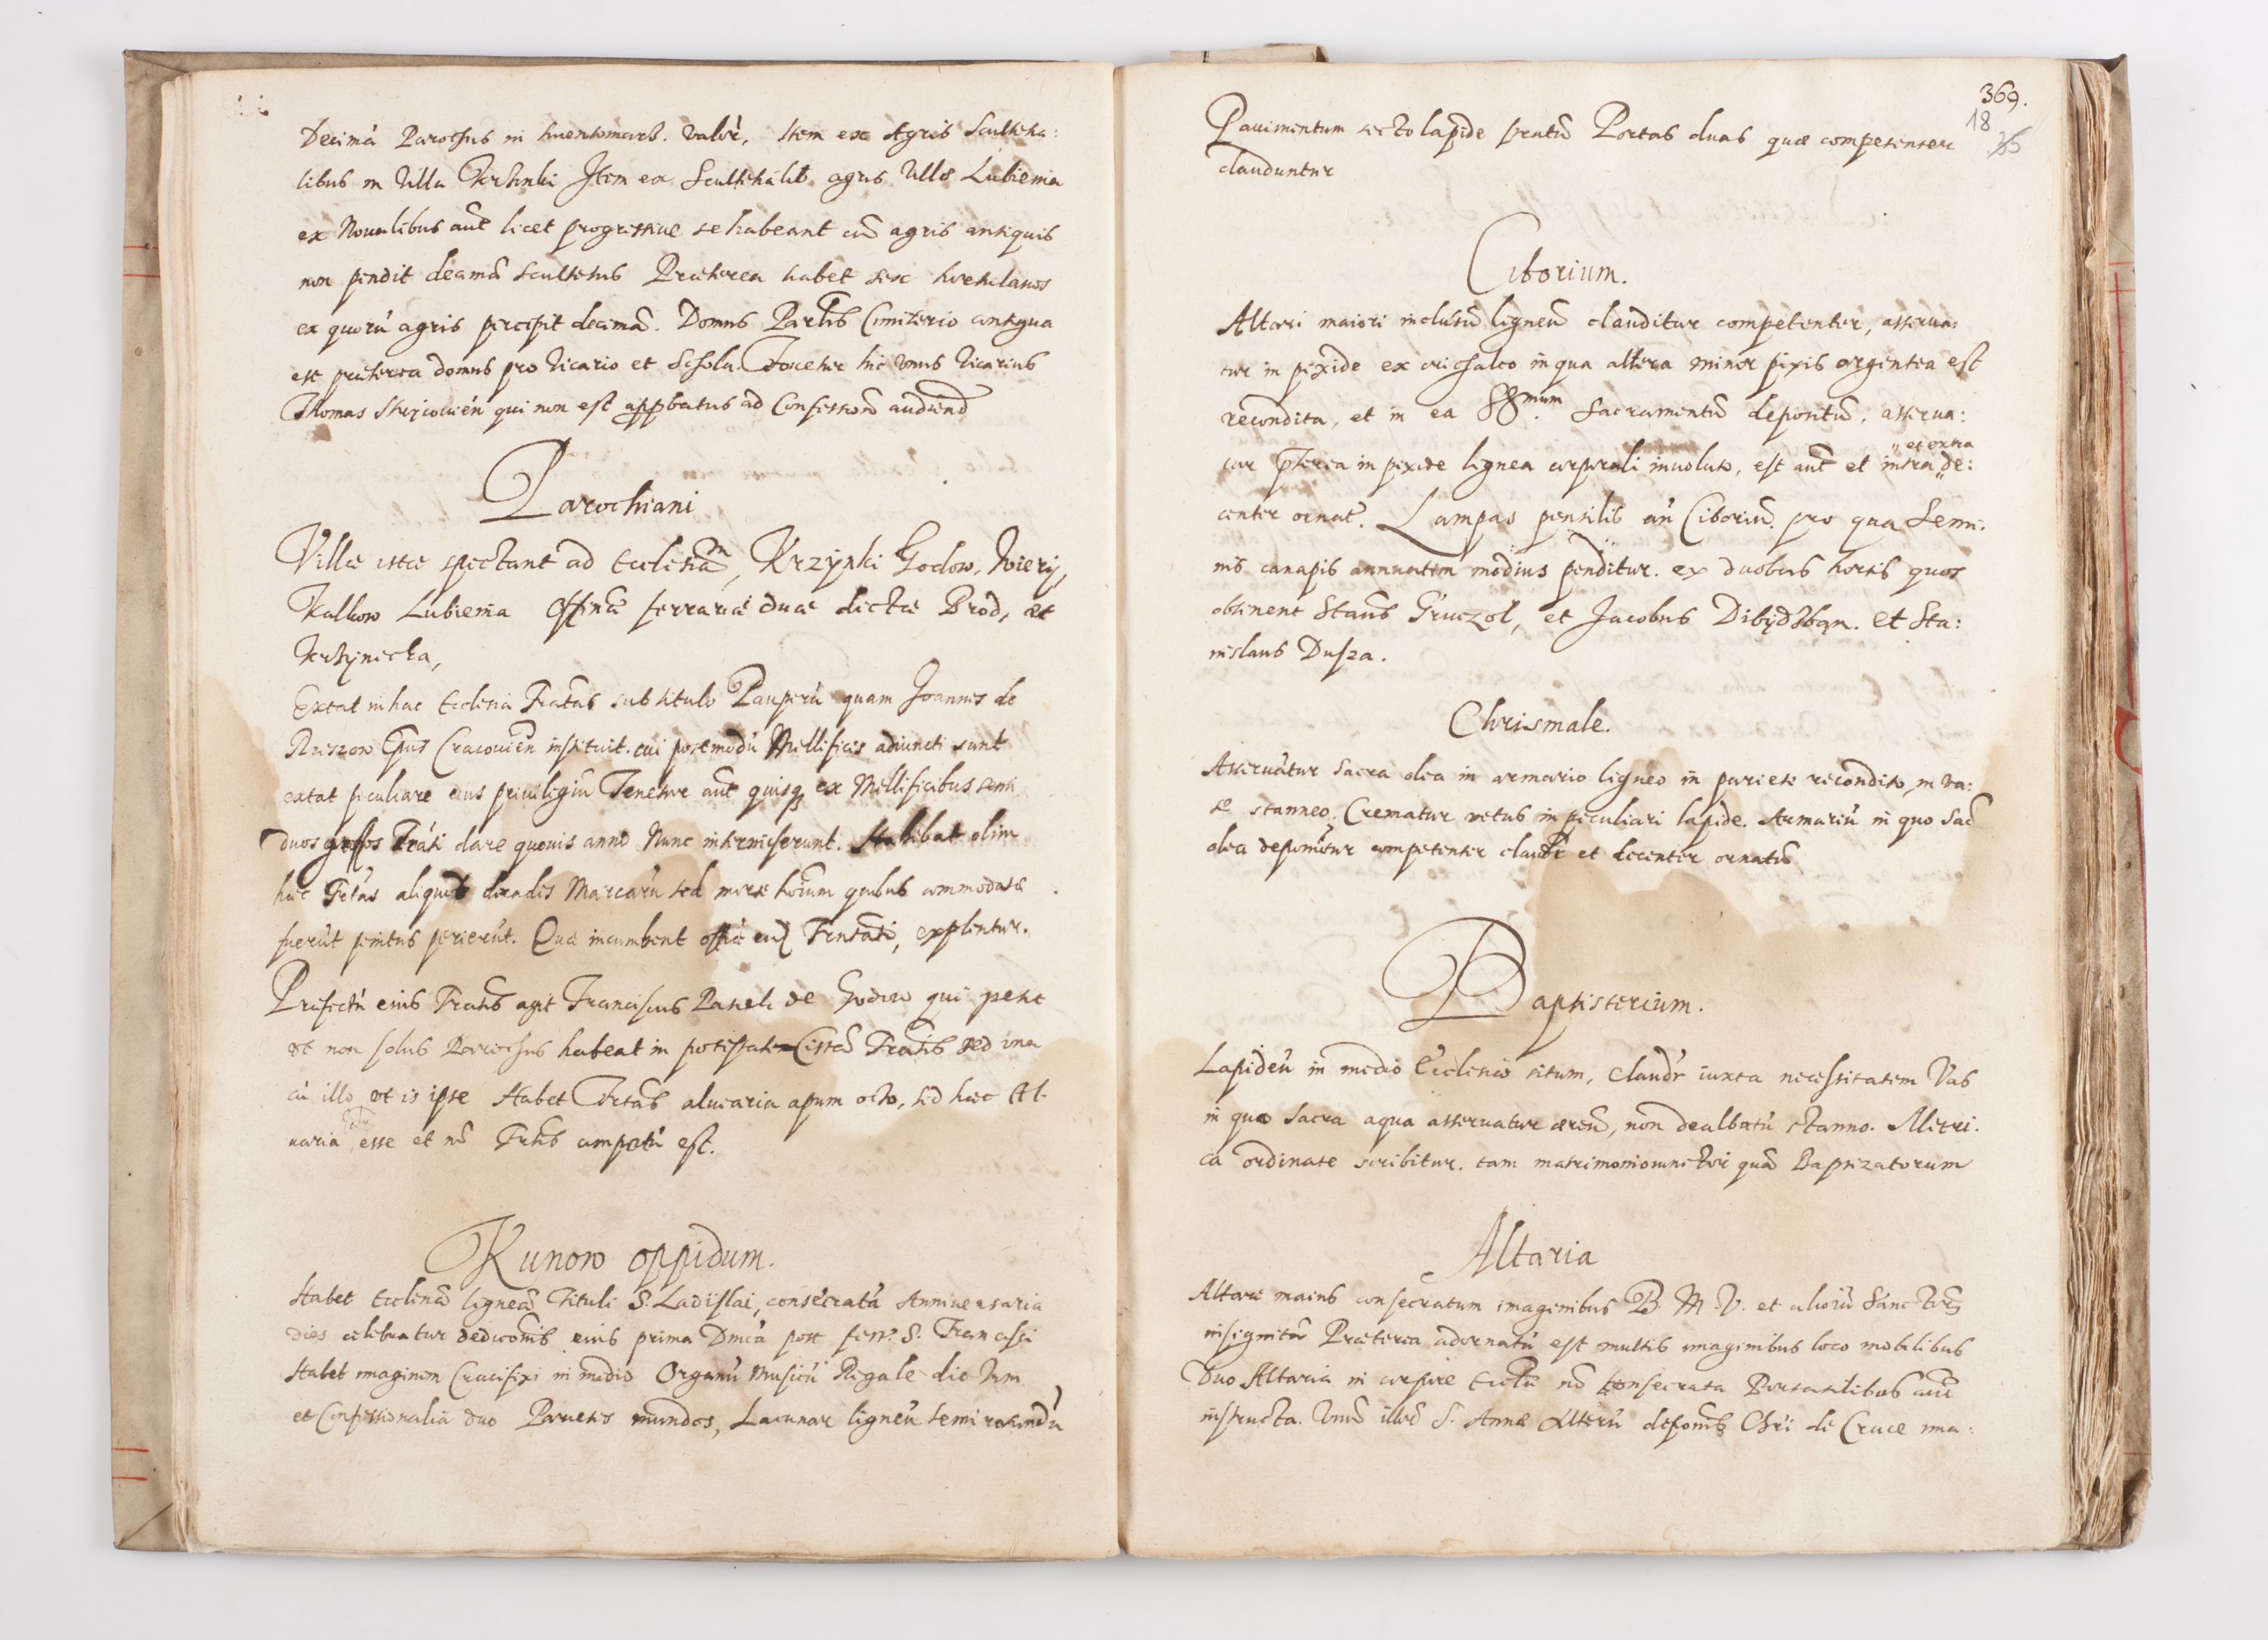 Decimā Parochus in huensomarch. valōr, Item ex Agris Sculteha:
libus in Villa Krzinki Item ex Scultetialib. agris Villæ Lubienia
ex Noualibus aūt licet progressiue se habeant cū agris antiquis
non pendit decimā Scultetus Præterea habet sex hortulanos
ex quorū agris percipit decimā. Domus Parlis Cimiterio contigua
est præterea domus pro Vicario et Schola. Fouetur hic vnus Vicarius
Thomas qui non est appbatus ad Confessionē audiend
Parochiani
Villæ istæ spectant ad Ecclesiam, Krzynki Godow, Wiery,
Kalkow Lubienia Offinæ ferrariæ duæ dictæ Brod, et
Krzynicka,
Extat in hac Ecclesia Fratas sub titulo Pauperū quam Joannes de
Ruszow Epus Cracouien instituit. cui postmodū Mellifices adiuncti sunt
extat peculiare eius priuilegiū Tenetur aūt quisq ex Mellificibus
duos grossos Frati dare quouis anno Nunc intermiserunt. Habebat olim
hæc Frtas aliquot decades Marcarū sed morte hoīum quibus commodatæ
fuerūt penitus perierūt. Quæ incumbent offic Frnitati, explentur.
Præfectū eius Fratis agit Franciscus Panek de Godow qui petit
vt non solus Parochus habeat in potestate Cistā Fratis sed una
cū illo vt is ipse Habet Frtas aluearia apum octo, sed hæc Al-
uaria esse et nō Frtis compertū est.
Kunow oppidum.
Habet Ecclesiā ligneā Tituli S. Ladislai, consecratā Anniuersaria
dies celebratur dedicōnis eius prima Dnicā post fest. S. Francissi
Habet imaginem Crucifixi in medio Organū Musicū Regale dictum
et Confessionalia duo Parietes mundos, Lacunar ligneū semirotundū
369.
18
Pauimentum secto lapide stratū Portas duas quæ competenter
clauduntur
Ciborium.
Altari maiori inclusū ligneū clauditur competenter, asserua:
tur in pixide ex orichalco in qua altera minor pixis argentea est
recondita, et in ea SSmum. Sacramentū depositū, asserua:
tur pterea in pixide lignea corporali inuoluto, est aūt et intra „et extra„ de:
center ornat. Lampas pensilis an Ciboriū. pro qua Semi:
nis canapis annuatim modius penditur. ex duobus hortis quos
obtinent Stans Gruczol, et Jacobus et Sta:
nislaus Dusza.
Chrismale.
Asseruātur Sacra olea in armario ligneo in pariete recondito, in va:
se stanneo, Crematur vetus in peculiari lapide. Armariū in quo Sac
olea deponūtur competenter claudr et decenter ornatū
Baptisterium.
Lapideū in medio Ecclesiæ situm, claudr iuxta necessitatem Vas
in quo Sacra aqua asseruatur æreū, non dealbatū stanno. Metri:
ca ordinate scribitur. tam matrimonio quā Baptizatorum
Altaria
Altare maius consecratum imaginibus B. M. V. et aliorū Sanctorū
insignitū Præterea adornatū est multis imaginibus loco mobilibus
Duo Altaria in corpore Eccliæ nō consecrata Portatilibus aūt
instructa. Vnū illorū S. Annæ Alterū deponis Chri de Cruce ima: